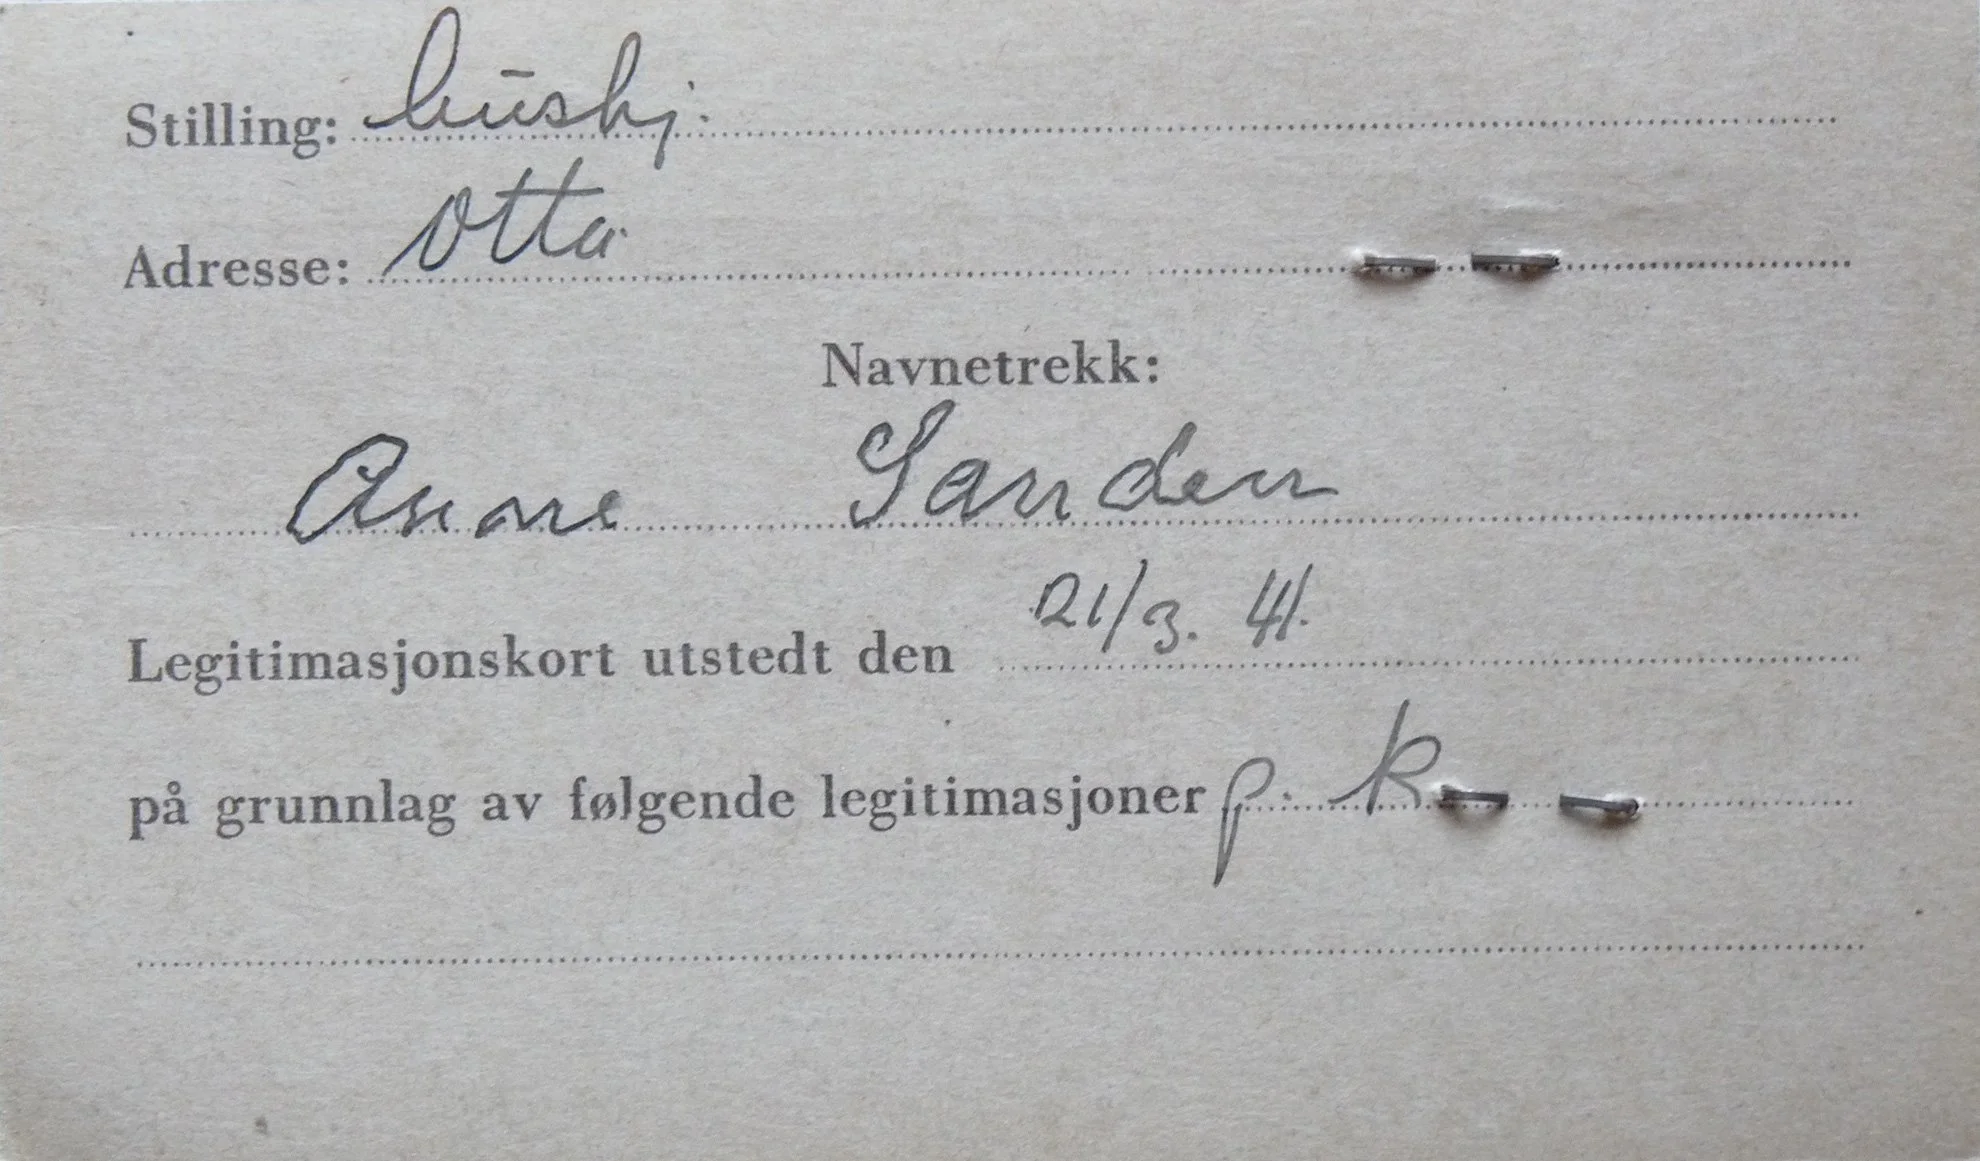 Stilling: hushj.
Adresse: Otta
Navnetrekk:
Anne Sanden
Legitimasjonskort utstedt den 21/3. 41.
på grunnlag av følgende legitimasjoner p. k